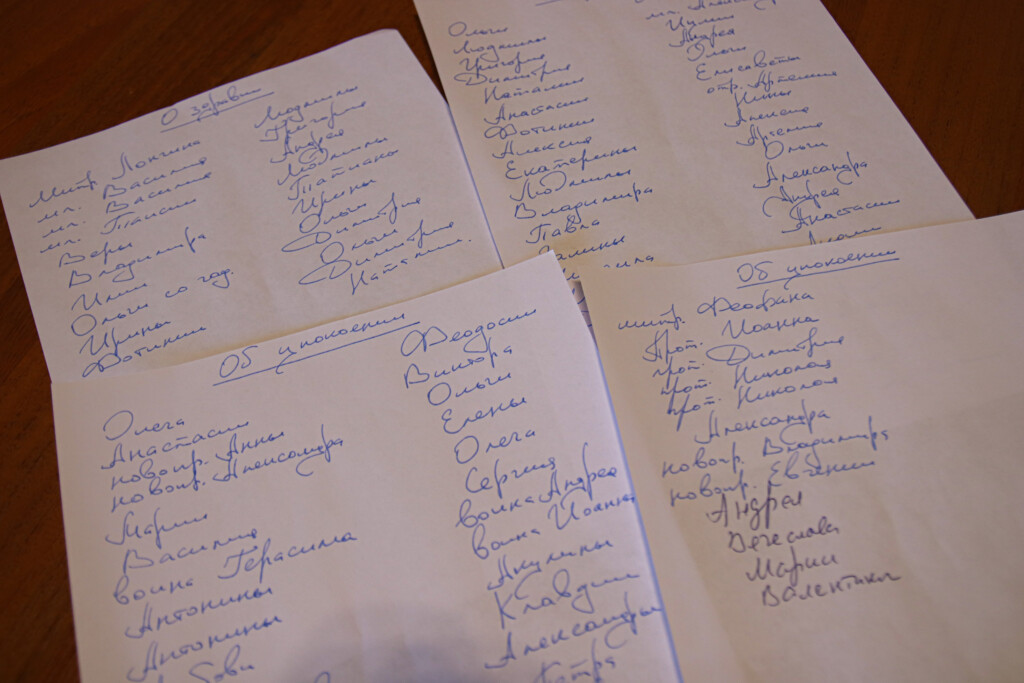 О здравии
митр. Лонгина
мл. Василия
мл. Василия
мл. Таисии
Веры
Владимира
Илии
Ольги со чад.
Ирины
Фотинии
Людмилы
Григория
Андрея
Людмилы
Татианы
Ирины
Ольги
Димитрия
Ольги
Димитрия
Наталии.
Ольги
Людмилы
Григория
Димитрия
Наталии
Анастасии
Фотинии
Алексия
Екатерины
Людмилы
Владимира
Павла
Андрея
Ольги
Елисаветы
отр. Артемия
Нины
Алексия
Арсения
Ольги
Александра
Андрея
Анастасии
Об упокоении
Олега
Анастасии
новопр. Анны
новопр. Александра
Марии
Василия
воина Герасима
Антонины
Антонины
Феодосии
Виктора
Ольги
Елены
Олега
Сергия
воина Андрея
воина Иоанна
Акулины
Клавдии
Александры
Петра
Об упокоении
митр. Феофана
Прот. Иоанна
прот. Димитрия
прот. Николая
прот. Николая
Александра
новопр. Владимира
новопр. Евгении
Андрея
Вячеслава
Марии
Валентины